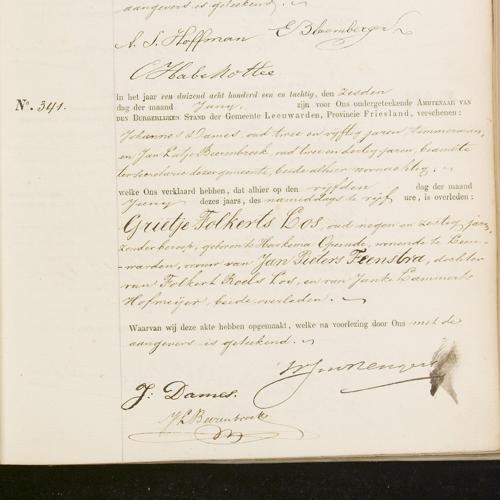 aangevers is geteekend.
A. S. Hoffman E Bloembergen
C Habekottee
No. 341.
In het jaar een duizend acht honderd een en tachtig, den zesden
dag der maand Juny, zijn voor Ons ondergeteekende AMBTENAAR VAN
DEN BURGERLIJKEN STAND der Gemeente LEEUWARDEN, Provincie FRIESLAND, verschenen:
Johannes Dames, oud twee en vijftig jaren timmerman,
en Jan Beerenbroek, oud twee en dertig jaren, beambte
ter secretarie dezer gemeente, beide alhier woonachtig,
welke Ons verklaard hebben, dat alhier op den vijfden dag der maand
Juny dezes jaars, des namiddags te vijf ure, is overleden:
Grietje Folkerts Los, oud negen en zestig jaren,
zonder beroep, geboren te Harkema Opeinde, wonende te Leeu-
-warden, vrouw van Jan Pieters Feenstra, dochter
van Folkert Roels Los, en van Janke Lammerts
Hofmeijer beide overleden.
Waarvan wij deze akte hebben opgemaakt, welke na voorlezing door Ons met de
aangevers is geteekend.
J: Dames.
J L Beerenbroek